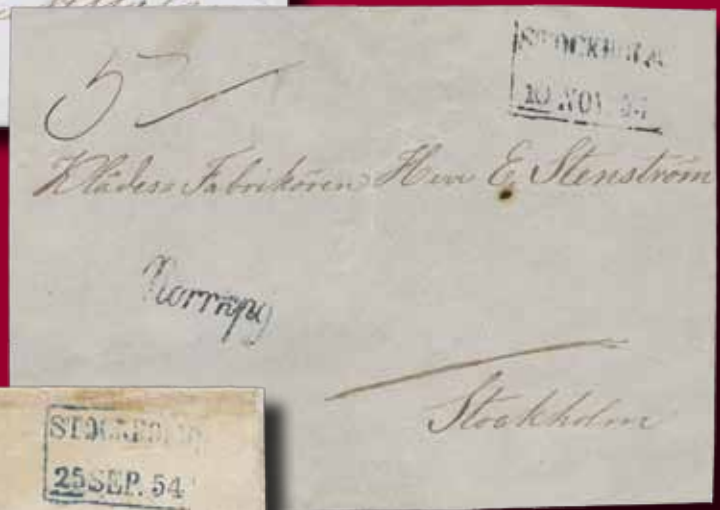 5
STOCKHOLM
10 NOV. 54
Klädes Fabrikören Herr E. Stenström
Norrköping
Stockholm
STOCKHOLM
25 SEP. 54